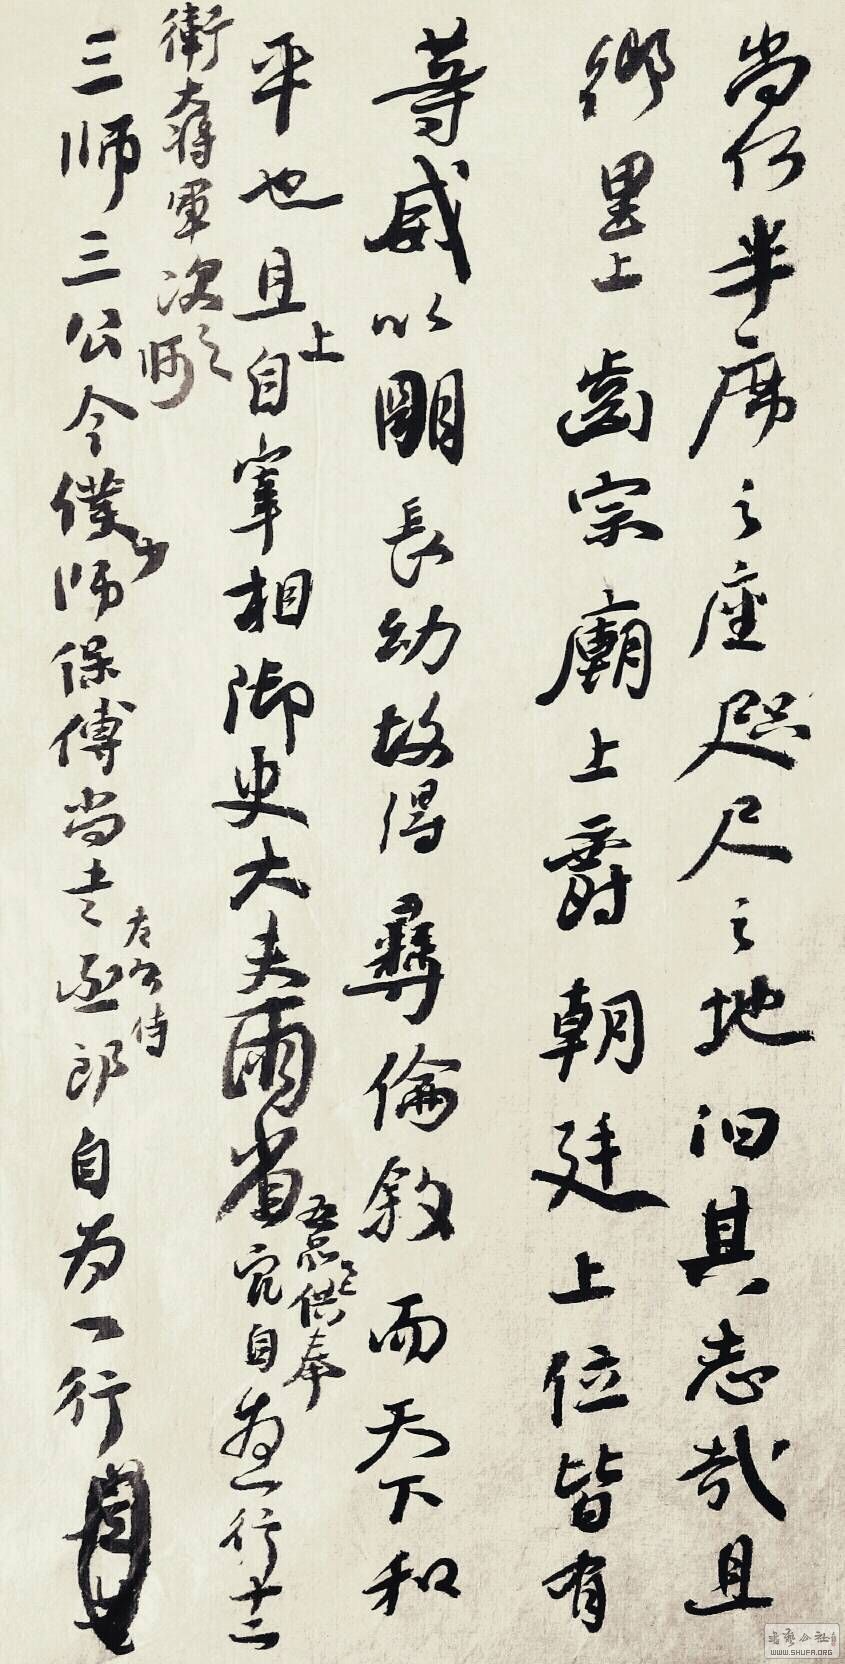 尚何半席之座咫尺之地汩其志哉且
鄉里上齒宗廟上爵朝廷上位皆有
等威以明長幼故得彝倫敘而天下和
平也且上自宰相御史大夫兩省五品已供奉官自為一行十二
衛大將軍次之師
三师三公令僕少师保傅尚書左右丞侍郎自为一行
書藝公社
WWW.SHUFA.ORG